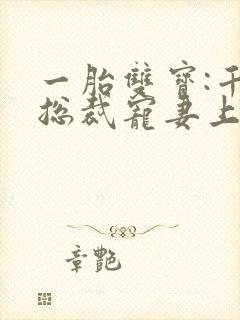 一胎雙寶:千
總裁寵妻上
章艷